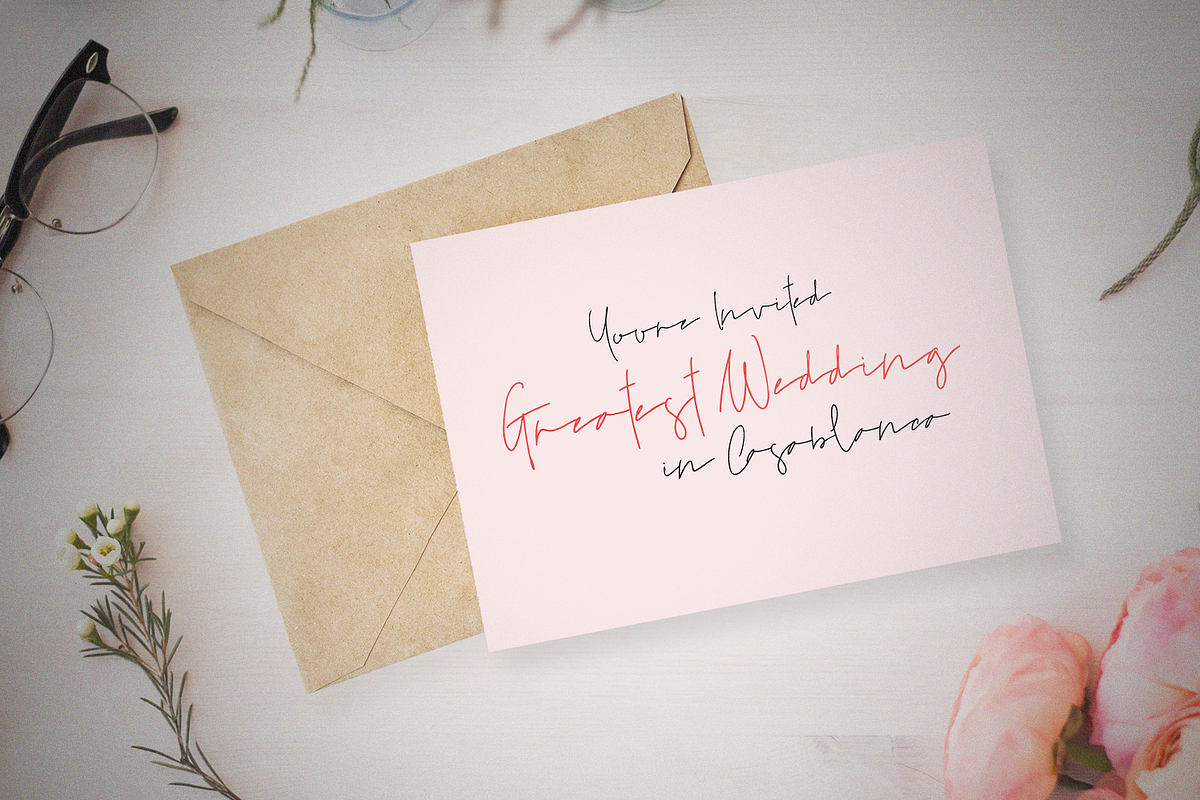 Youre Invited
Greatest Wedding
in Casablanca